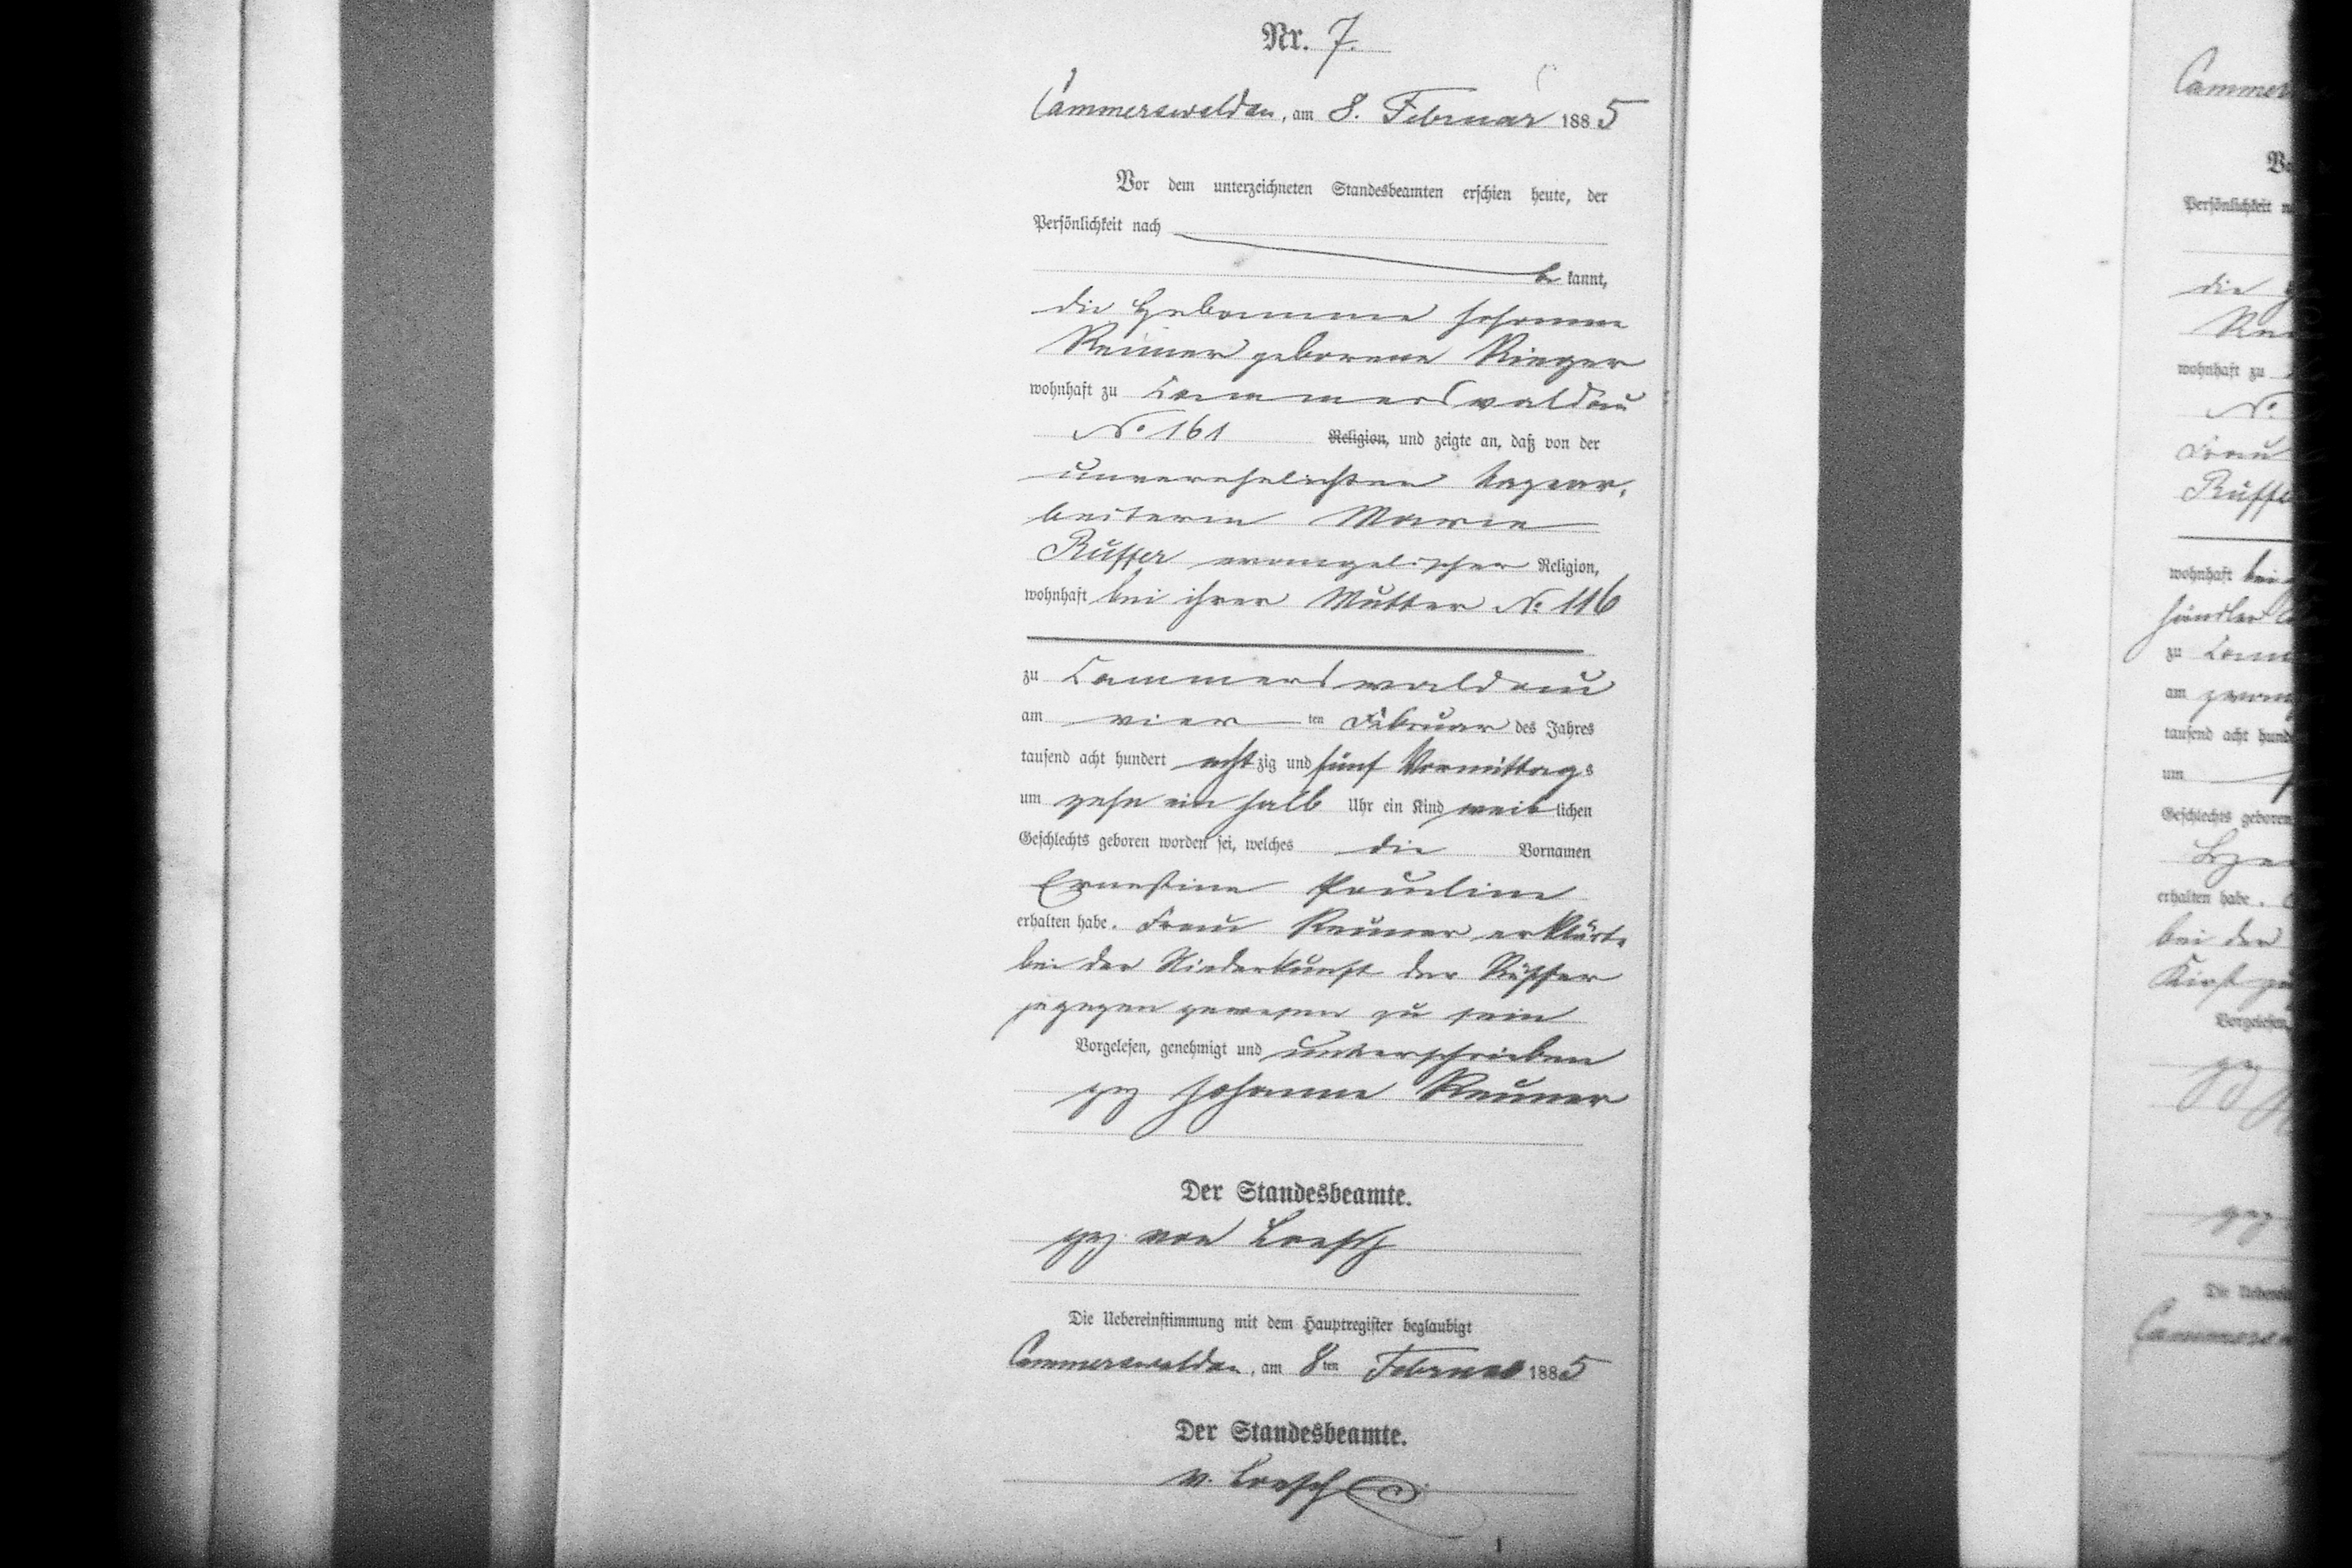 Nr. 7.
Cammerswaldau, am 8. Februar 1885
Vor dem unterzeichneten Standesbeamten erschien heute, der
Persönlichkeit nach
bekannt,
die Hebamme Johanne
Reuner geborene Rieger
wohnhaft zu Cammerswaldau
No. 161 Religion, und zeigte an, daß von der
unverehelichten Tagear,
beiterin Marie
Rüffer evangelischer Religion,
wohnhaft bei ihrer Mutter No. 116
zu Cammerswaldau
am vier ten Februar des Jahres
tausend acht hundert achtzig und fünf Vormittags
um zehn ein halb Uhr ein Kind weiblichen
Geschlechts geboren worden sei, welches die Vornamen
Ernestine Pauline
erhalten habe. Frau Reuner erklärte
bei der Niederkunft der Rüffer
zugegen gewesen zu sein
Vorgelesen, genehmigt und unterschrieben
gez Johanne Reuner
Der Standesbeamte.
gez von Loesch
Die Uebereinstimmung mit dem Hauptregister beglaubigt
Cammerswaldau, am 8ten Februar 1885
Der Standesbeamte.
v. Loesch
Persönlichkeit
die
wohnhaft zu
No.
Frau
Rüffer
wohnhaft bei
händler
zu
am
tausend acht
um
Geschlechts geboren
erhalten habe.
bei der
Vorgelesen,
gez
gez
Die